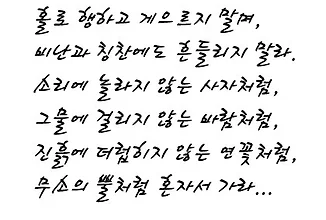 홀로 행하고 게으르지 말며,
비난과 칭찬에도 흔들리지 말라.
소리에 놀라지 않는 사자처럼,
그물에 걸리지 않는 바람처럼,
진흙에 더럽히지 않는 연꽃처럼,
무소의 뿔처럼 혼자서 가라...